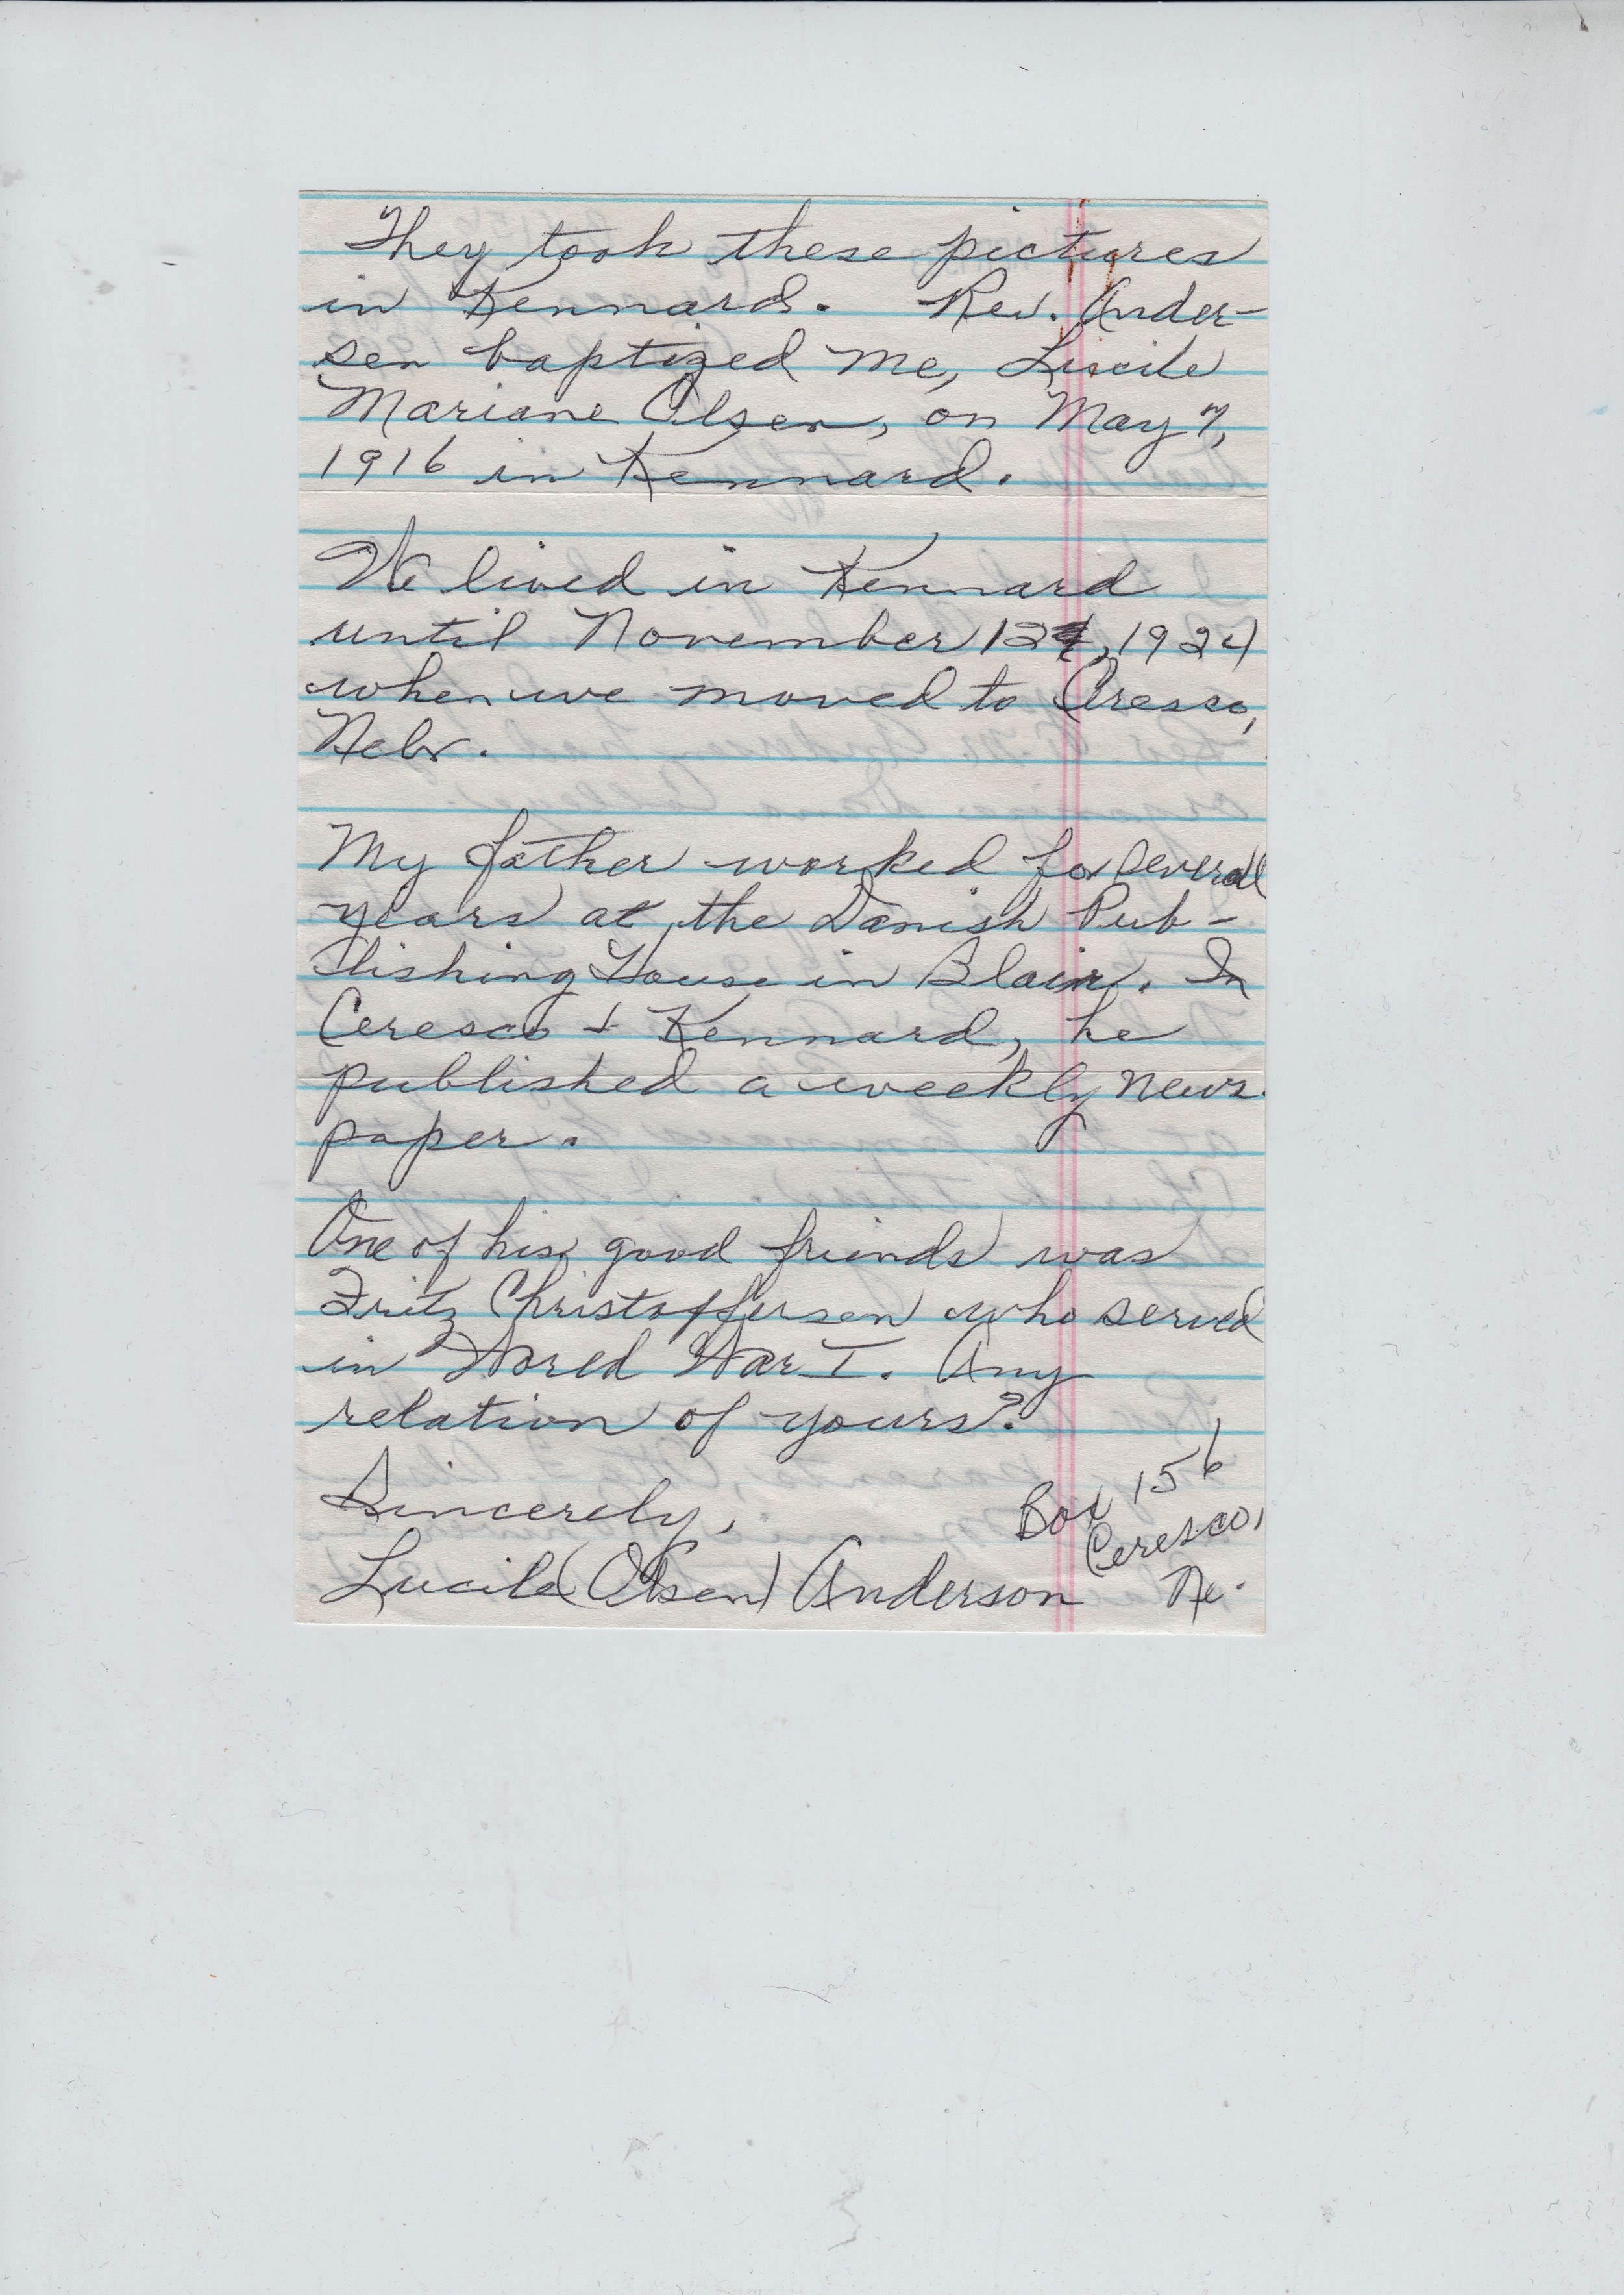 They took these pictures
in Kennard. Rev. Ander-
sen baptized me, Lucile
Mariane Olsen, on May 7,
1916 in Kennard.
We lived in Kennard
until November 12, 1924
when we moved to Ceresco,
Nebr.
My father worked for several
years at the Danish Pub-
lishing House in Blair. In
Ceresco + Kennard, he
published a weekly news-
paper.
One of his good friends was
Fritz Christoffersen who served
in World War I. Any
relation of yours?
Sincerely,
Lucile (Olsen) Anderson
Box 156
Ceresco,
Ne.